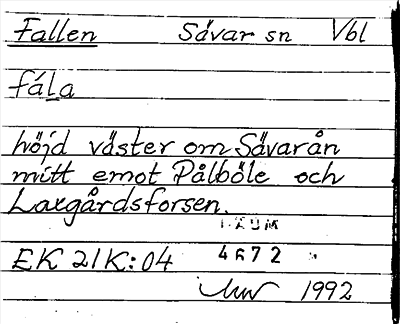 Fallen Sävar sn Vbl
fála
höjd väster om Sävarån
mitt emot Pålböle och
Laxgårdsforsen.
DAUM
EK 21K:04 4672
1992